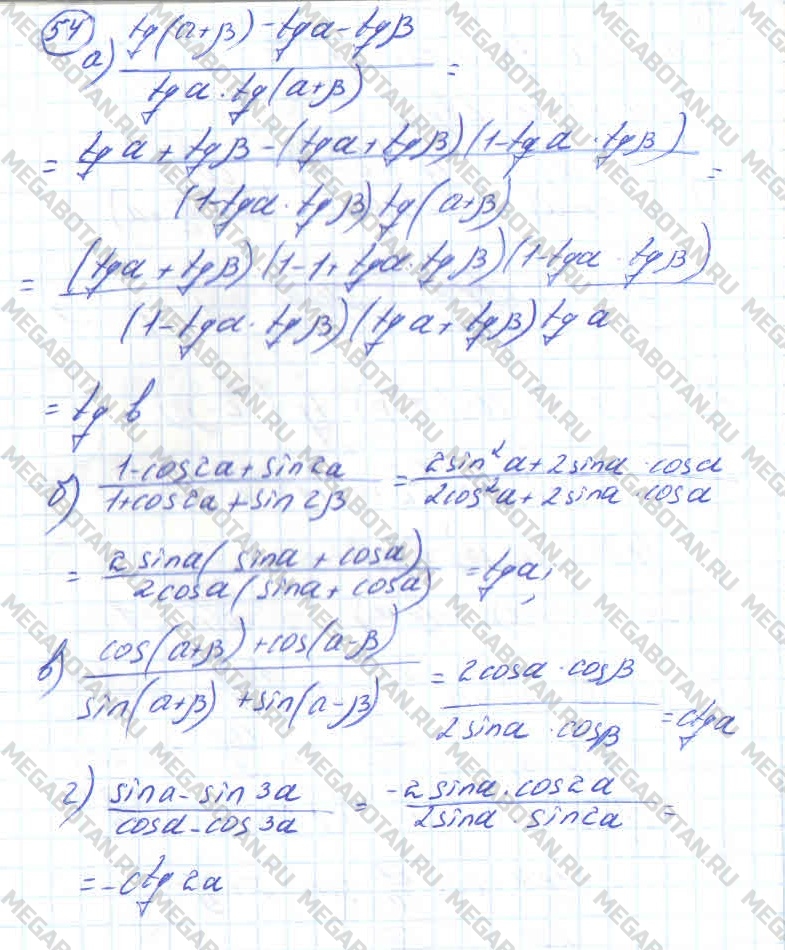 54
а) (tg(α+β) - tgα - tgβ) / (tgα · tg(α+β)) =
= (tgα + tgβ - (tgα + tgβ)(1 - tgα · tgβ)) / ((1 - tgα · tgβ) tg(α+β)) =
= ((tgα + tgβ)(1 - 1 + tgα · tgβ)(1 - tgα · tgβ)) / ((1 - tgα · tgβ)(tgα + tgβ) tgα)
= tg b
б) (1 - cos2α + sin2α) / (1 + cos2α + sin2β) = (2sin²α + 2sinα · cosα) / (2cos²α + 2sinα · cosα)
= (2sinα(sinα + cosα)) / (2cosα(sinα + cosα)) = tgα;
в) (cos(α+β) + cos(α-β)) / (sin(α+β) + sin(α-β)) = (2cosα · cosβ) / (2sinα · cosβ) = ctgα
г) (sinα - sin3α) / (cosα - cos3α) = (-2sinα · cos2α) / (2sinα sin2α) =
= -ctg2α
MEGABOTAN.RU